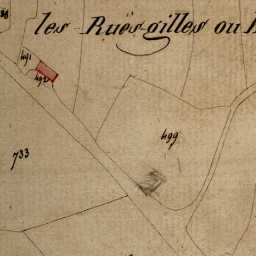 les Ruës gilles ou
491
492
499
733